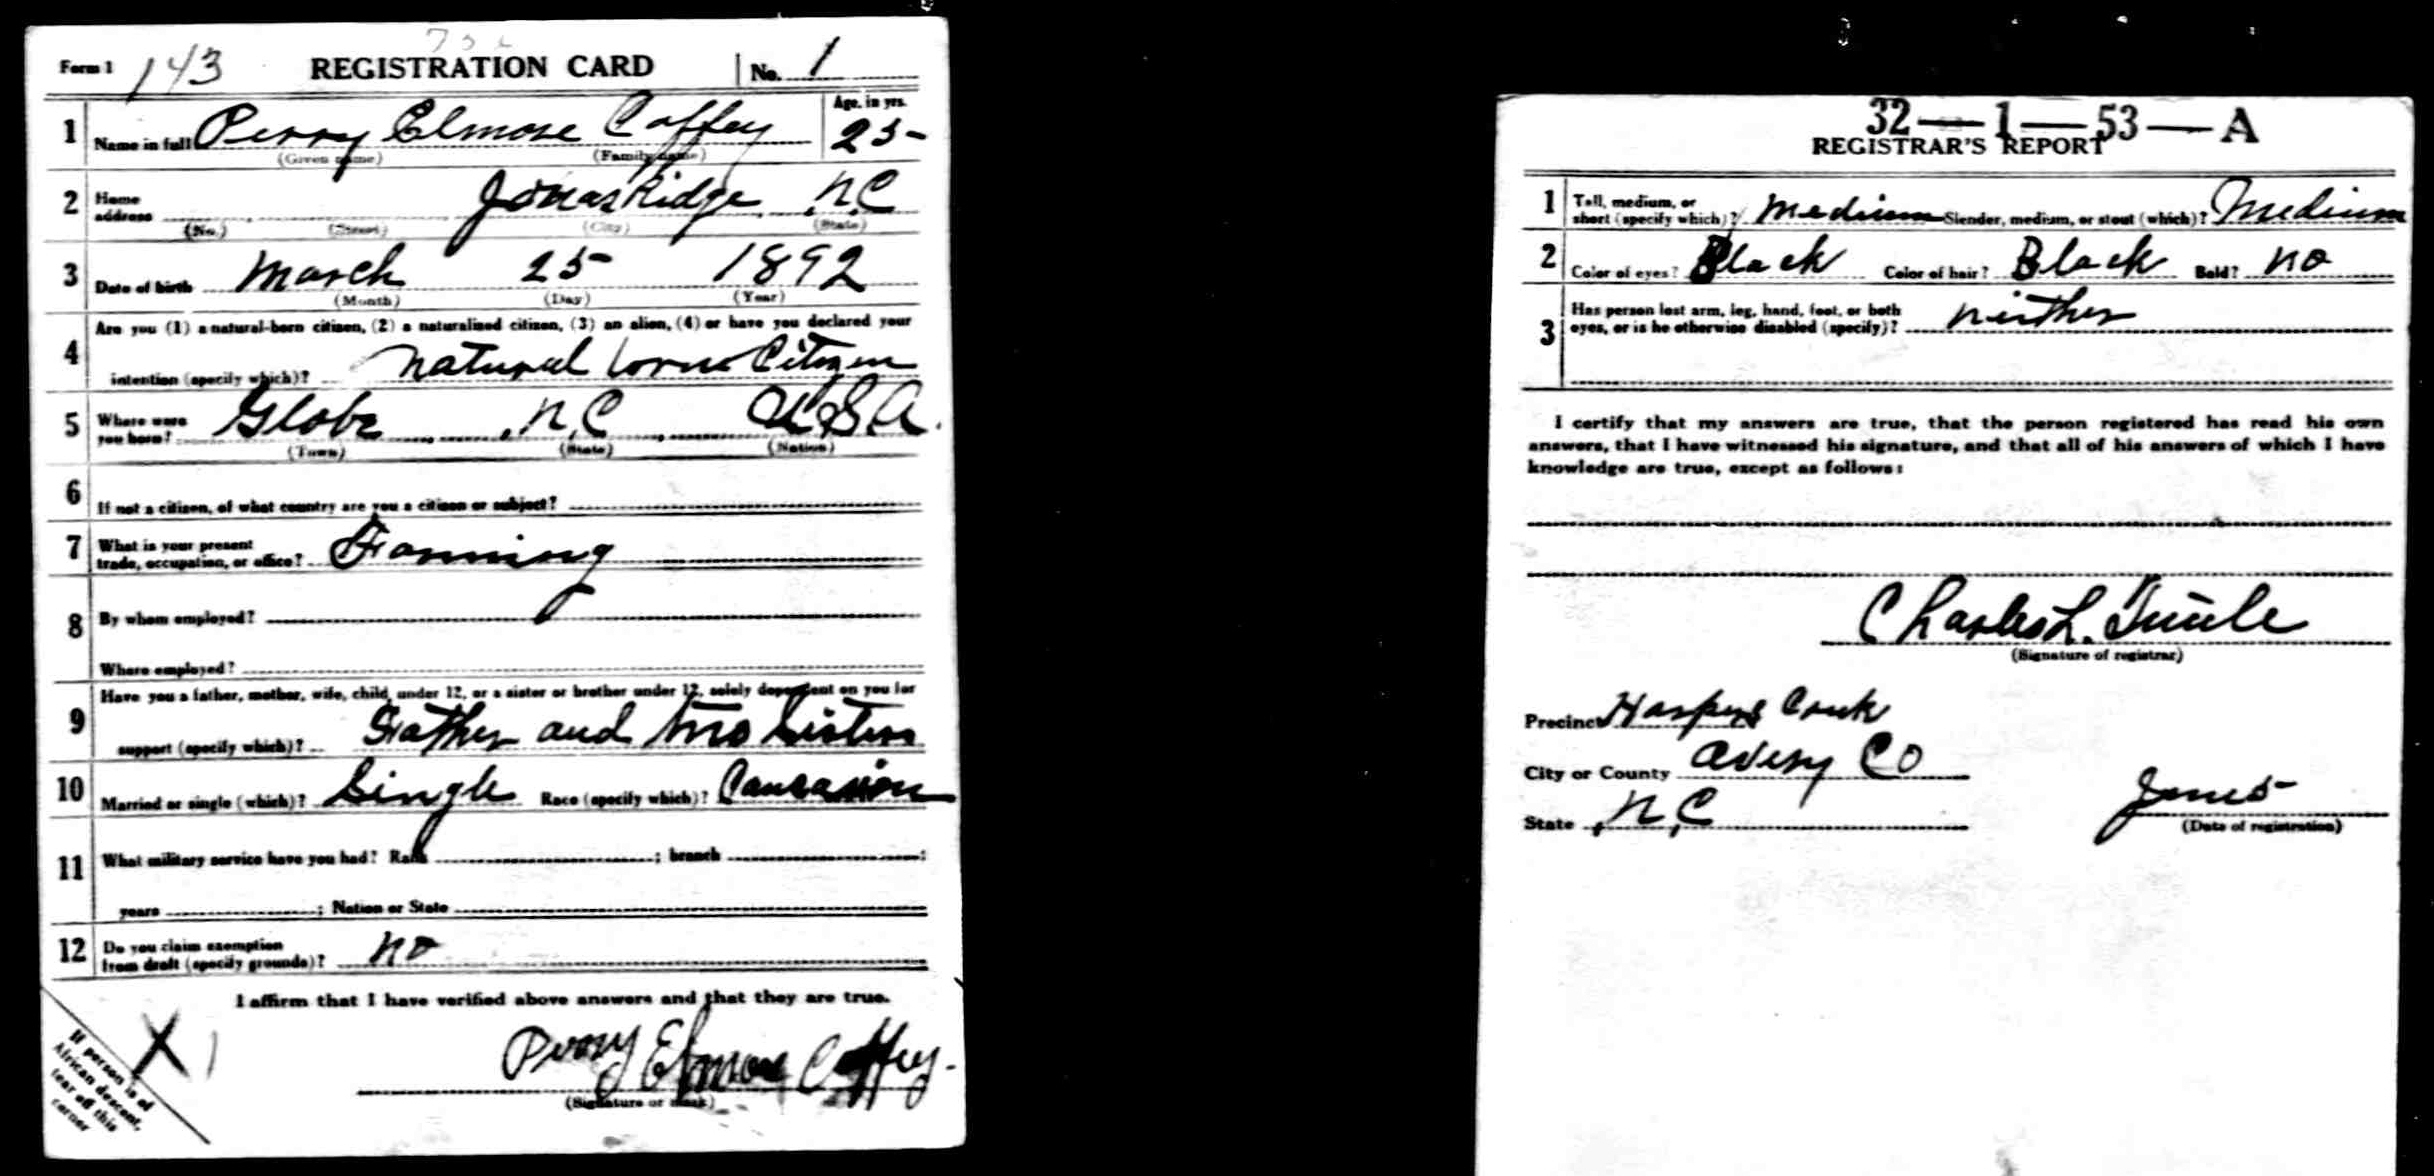 Form 1 143 REGISTRATION CARD No. 1
1 Name in full Perry Elmore Coffey Age, in yrs. 25
(Given name) (Family name)
2 Home address Jonas Ridge N.C
(No.) (Street) (City) (State)
3 Date of birth March 25 1892
(Month) (Day) (Year)
4 Are you (1) a natural-born citizen, (2) a naturalized citizen, (3) an alien, (4) or have you declared your
intention (specify which)? Natural born Citizen
5 Where were you born? Globe, N.C, U.S.A.
(Town) (State) (Nation)
6 If not a citizen, of what country are you a citizen or subject?
7 What is your present trade, occupation, or office? Farming
8 By whom employed?
Where employed?
9 Have you a father, mother, wife, child under 12, or a sister or brother under 12, solely dependent on you for
support (specify which)? Father and two Sisters
10 Married or single (which)? Single Race (specify which)? Caucasian
11 What military service have you had? Rank ; branch ;
years ; Nation or State
12 Do you claim exemption from draft (specify grounds)? no
I affirm that I have verified above answers and that they are true.
Perry Elmore Coffey
(Signature or mark)
If person is of African descent, tear off this corner
X 1
32—1—53—A
REGISTRAR'S REPORT
1 Tall, medium, or short (specify which)? Medium Slender, medium, or stout (which)? Medium
2 Color of eyes? Black Color of hair? Black Bald? no
3 Has person lost arm, leg, hand, foot, or both eyes, or is he otherwise disabled (specify)? neither
I certify that my answers are true, that the person registered has read his own
answers, that I have witnessed his signature, and that all of his answers of which I have
knowledge are true, except as follows:
Charles L.
(Signature of registrar)
Precinct Harpers Creek
City or County Avery Co
State N.C
June 5
(Date of registration)